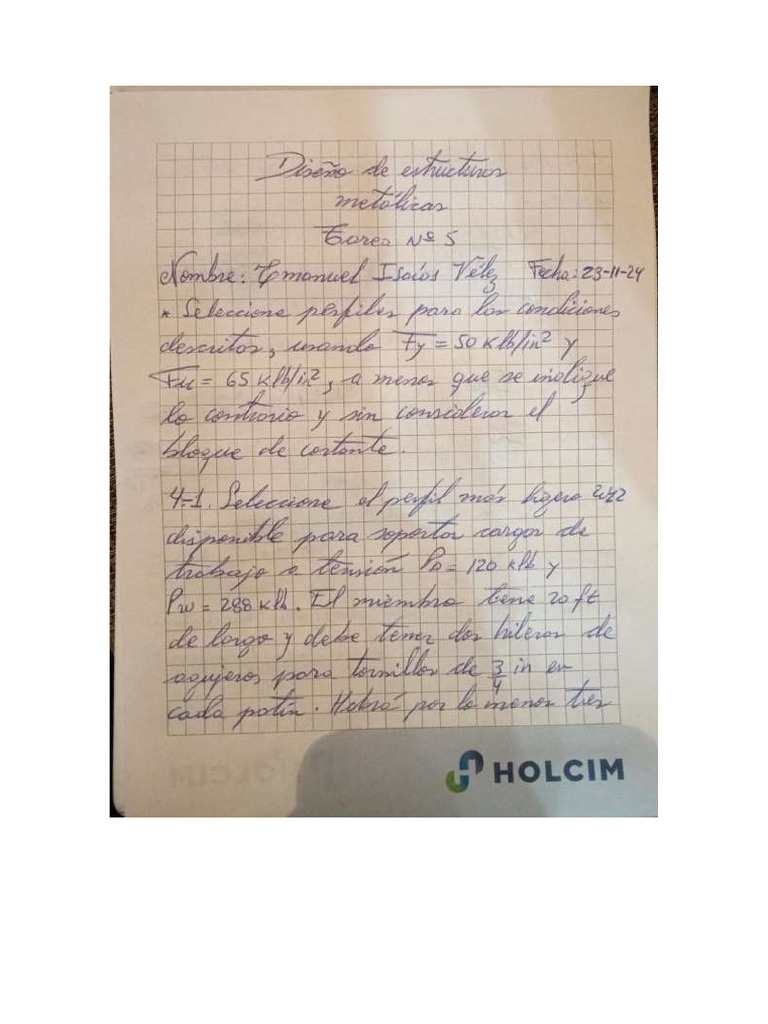 Diseño de estructuras
metálicas
Tarea Nº 5
Nombre: Emanuel Isaías Vélez Fecha: 23-11-24
* Seleccione perfiles para las condiciones
descritas, usando Fy = 50 klb/in² y
Fu = 65 klb/in², a menos que se indique
lo contrario y sin considerar el
bloque de cortante.
4-1. Seleccione el perfil más ligero W12
disponible para soportar cargas de
trabajo a tensión PD = 120 klb y
Pw = 288 klb. El miembro tiene 20 ft
de largo y debe tener dos hileras de
agujeros para tornillos de 3/4 in en
cada patín. Habrá por lo menos tres
HOLCIM